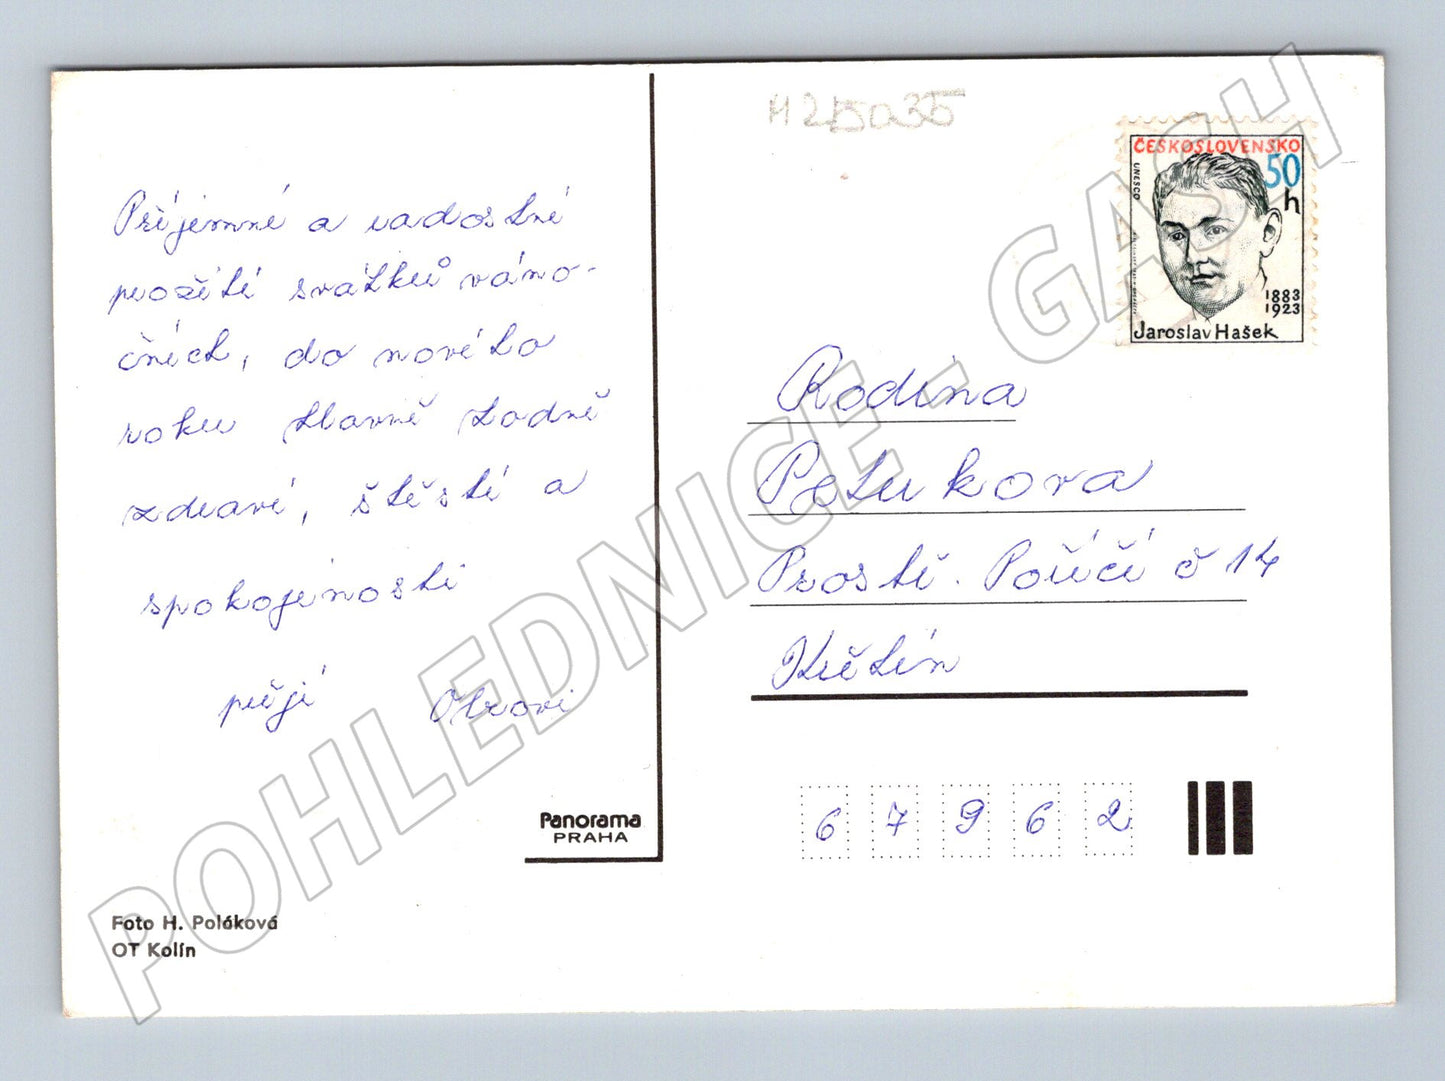 M 215035
ČESKOSLOVENSKO
50
h
UNESCO
1883
1923
Jaroslav Hašek
Příjemné a radostné
prožití svátků váno-
čních, do nového
roku hlavně hodně
zdraví, štěstí a
spokojenosti
přejí
Rodina
Petrů kova
Prostř. Poříčí č 14
Křetín
67962
Panorama
PRAHA
Foto H. Poláková
OT Kolín
POHLEDNICE - GASH